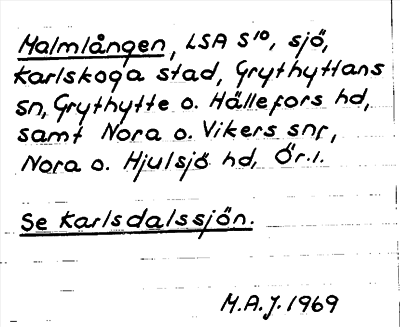 Malmlången, LSA S¹⁰, sjö,
Karlskoga stad, Grythyttans
sn, Grythytte o. Hällefors hd,
samt Nora o. Vikers snr,
Nora o. Hjulsjö hd, Ör.l.
Se Karlsdalssjön.
M.A.J. 1969